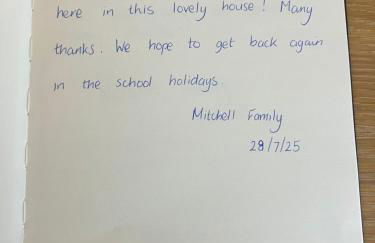 here in this lovely house! Many
thanks. We hope to get back again
in the school holidays.
Mitchell Family
29/7/25